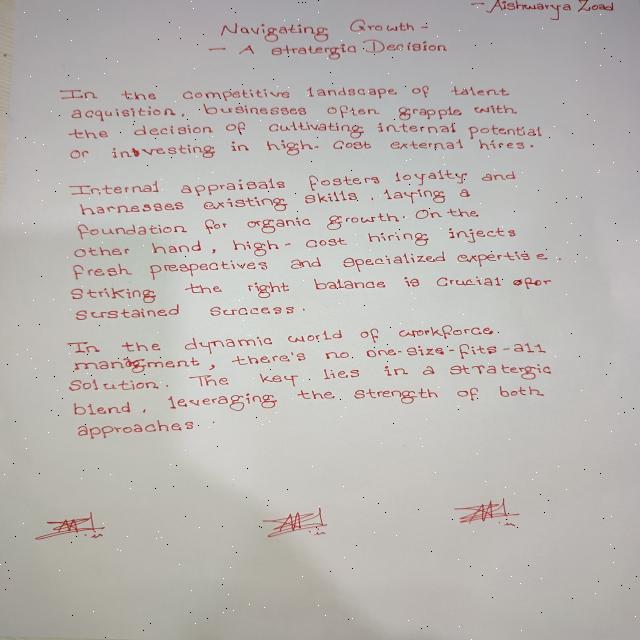 - Aishwarya Zoad
Navigating Growth -
- A stratergic Decision
In the competitive landscape of talent
acquisition, businesses often grapple with
the decision of cultivating internal potential
or investing in high-cost external hires.
Internal appraisals fosters loyalty and
harnesses existing skills, laying a
foundation for organic growth. On the
other hand, high-cost hiring injects
fresh prespectives and specialized expertise.
Striking the right balance is crucial for
sustained success.
In the dynamic world of workforce
managment, there's no one-size-fits-all
Solution. The key lies in a stratergic
blend, leveraging the strength of both
approaches.